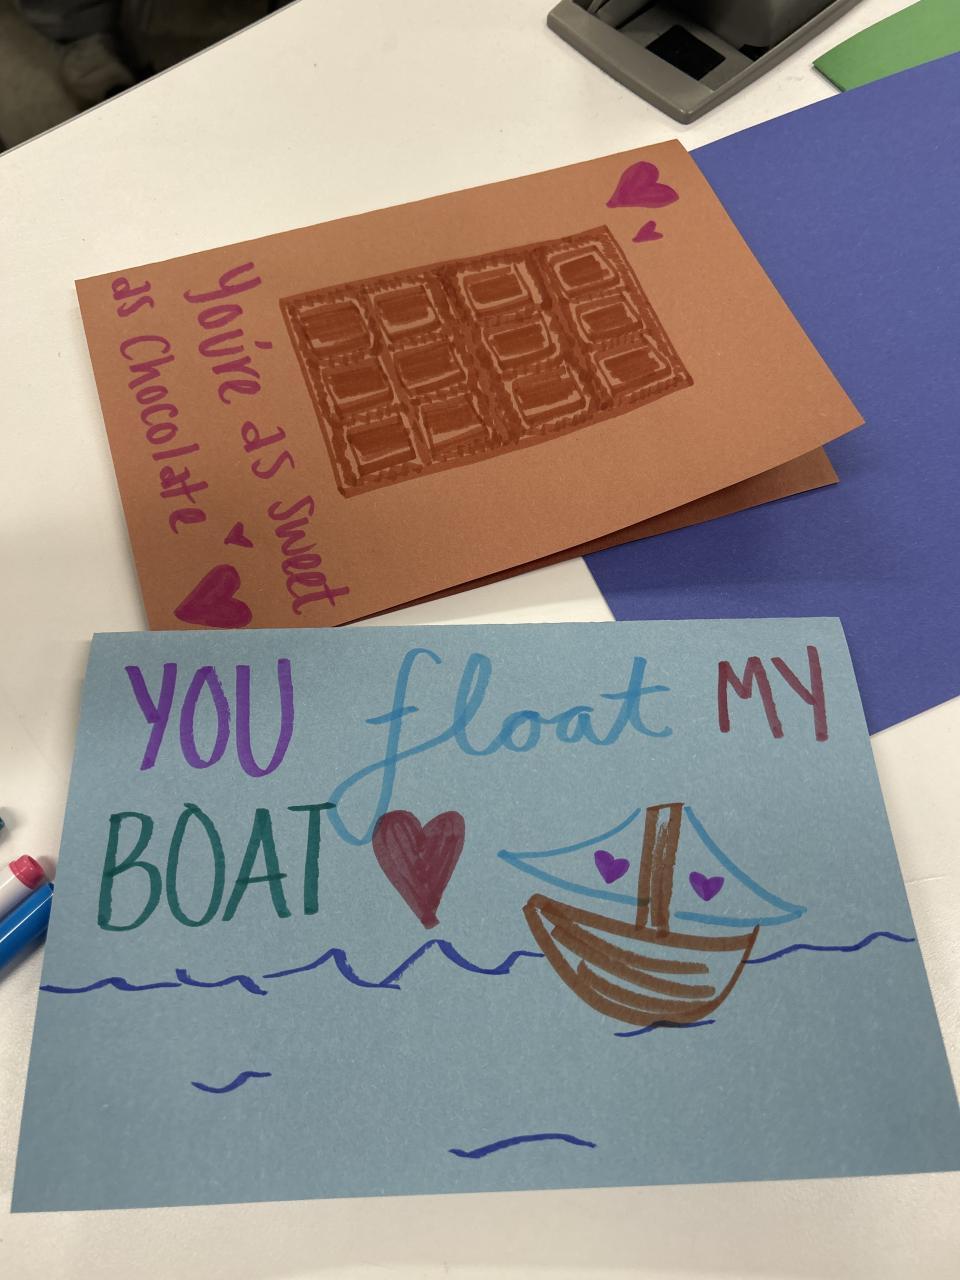 You're as sweet
as Chocolate
YOU float MY
BOAT